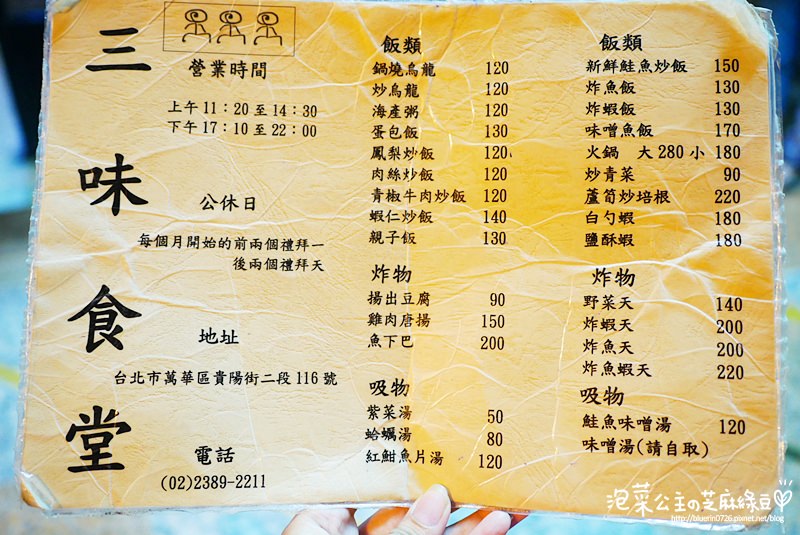 三味食堂
營業時間
上午 11：20 至 14：30
下午 17：10 至 22：00
公休日
每個月開始的前兩個禮拜一
後兩個禮拜天
地址
台北市萬華區貴陽街二段 116 號
電話
(02)2389-2211
飯類
鍋燒烏龍 120
炒烏龍 120
海產粥 120
蛋包飯 130
鳳梨炒飯 120
肉絲炒飯 120
青椒牛肉炒飯 120
蝦仁炒飯 140
親子飯 130
炸物
揚出豆腐 90
雞肉唐揚 150
魚下巴 200
吸物
紫菜湯 50
蛤蠣湯 80
紅魽魚片湯 120
飯類
新鮮鮭魚炒飯 150
炸魚飯 130
炸蝦飯 130
味噌魚飯 170
火鍋 大 280 小 180
炒青菜 90
蘆筍炒培根 220
白勺蝦 180
鹽酥蝦 180
炸物
野菜天 140
炸蝦天 200
炸魚天 200
炸魚蝦天 220
吸物
鮭魚味噌湯 120
味噌湯(請自取)
泡菜公主の芝麻綠豆
http://bluerin0726.pixnet.net/blog